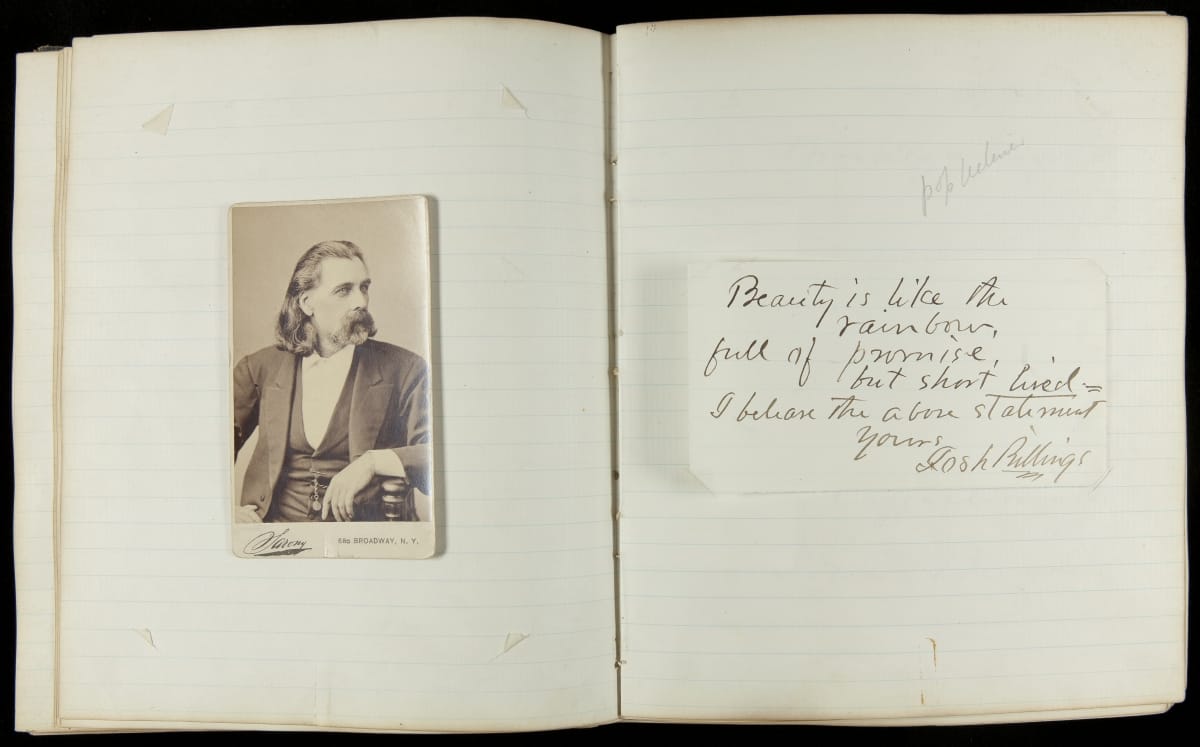 Sarony
680 BROADWAY, N. Y.
Beauty is like the
rainbow,
full of promise,
but short lived =
I beleave the above statement
Yours
Josh Billings